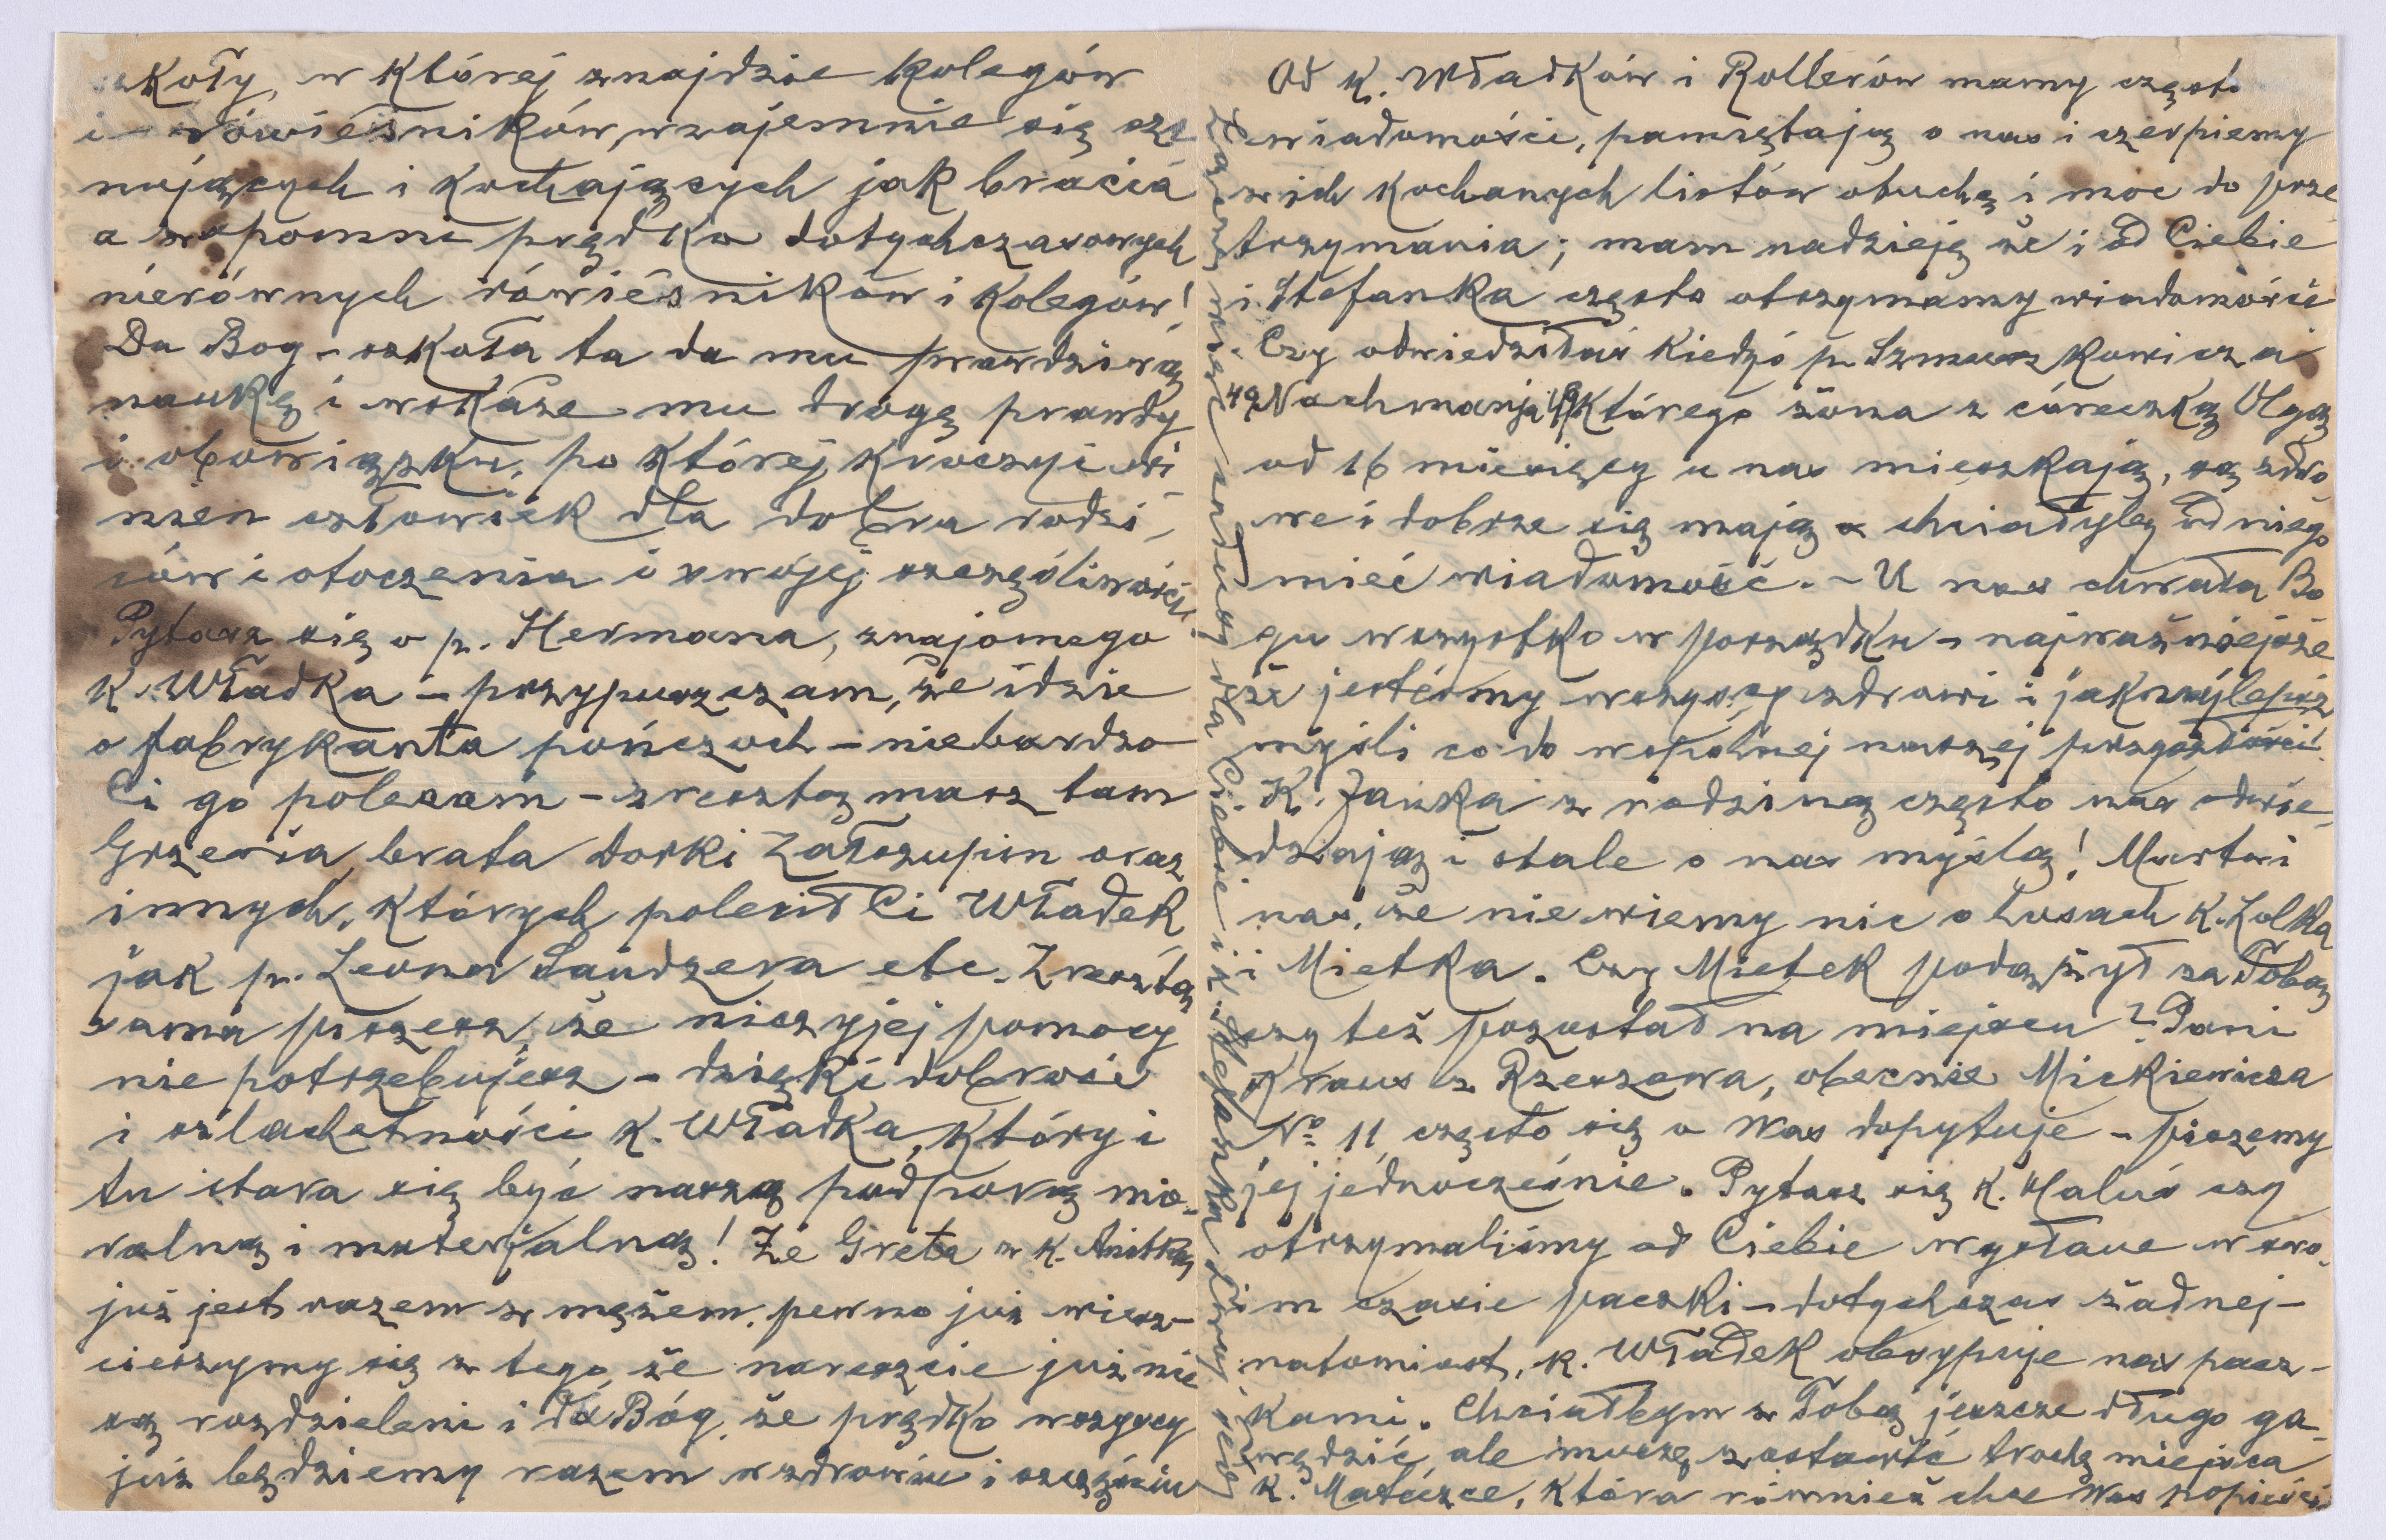 szkoły, w której znajdzie kolegów
i rówieśników, wzajemnie się sza
nujących i kochających jak bracia
a zapomni prędko dotychczasowych
nierównych rówieśników i kolegów!
Da Bog – szkoła ta da mu prawdziwą
naukę i wskaże mu drogę prawdy
i obowiązku, po której kroczyć wi
nien człowiek dla dobra rodzi-
ców i otoczenia i swojej szczęśliwości.
Pytasz się o p. Hermana, znajomego
K. Władka – przypuszczam, że idzie
o fabrykanta pończoch – niebardzo
Ci go polecam – zresztą masz tam
Grzesia, brata Dorki Załszupin oraz
innych, których polecił Ci Władek
jak p. Leona Saudzera etc. Zresztą
sama piszesz, że niczyjej pomocy
nie potrzebujesz – dzięki dobroci
i szlachetności K. Władka, który i
tu stara się być naszą podporą mo-
ralną i materjalną! Że Greta z K. Anitką
już jest razem z mężem, pewno już wiesz –
cieszymy się z tego, że nareszcie już nie
są rozdzieleni i da Bóg, że prędko wszyscy
już będziemy razem w zdrowiu i szczęściu
Od K. Władków i Rollerów mamy często
wiadomości, pamiętają o nas i czerpiemy
z ich kochanych listów otuchę i moc do prze
trzymania; mam nadzieję że i od Ciebie
i Stefanka często otrzymamy wiadomości
Czy odwiedziłaś kiedyś p. Szmuszkowicza
Nachmanja 49 którego żona z córeczką Olgą
od 16 miesięcy u nas mieszkają, są zdro
we i dobrze się mają a chciałyby od niego
mieć wiadomość. – U nas chwała Bo
gu wszystko w porządku – najważniejsze
że jesteśmy wszyscy zdrowi i jaknajlepszej
myśli co do wspólnej naszej przyszłości.
K. Janka z rodziną często nas odwie-
dzają i stale o nas myślą! Martwi
nas, że nie wiemy nic o losach K. Lolka
i Mietka. Czy Mietek podążył za Tobą
czy też pozostał na miejscu? Pani
Kraus z Rzeszowa, obecnie Mickiewicza
No 11 często się o Was dopytuje – piszemy
jej jednocześnie. Pytasz się K. Haluś czy
otrzymaliśmy od Ciebie wysłane w swo-
im czasie paczki – dotychczas żadnej –
natomiast, K. Władek obsypuje nas pacz-
kami. Chciałbym z Tobą jeszcze długo ga-
wędzić, ale muszę zostawić trochę miejsca
K. Mateczce, która również chce Was popieścić
Zasyłam serdeczności dla Ciebie i K. Stefanka